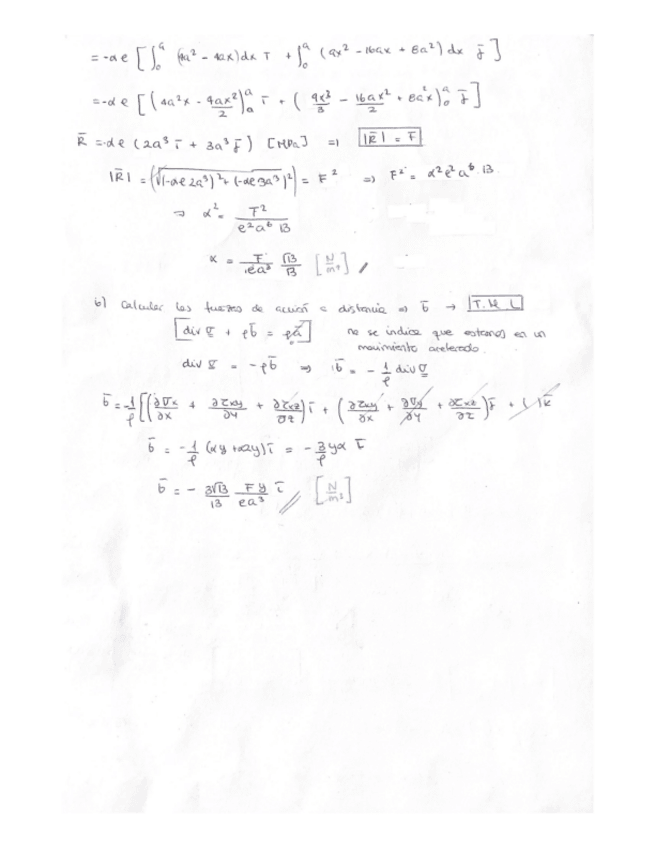 = -αe [ ∫₀ᵃ (4a² - 4ax) dx ī + ∫₀ᵃ (9x² - 16ax + 8a²) dx j̄ ]
= -αe [ (4a²x - 4ax²/2)ₐᵃ ī + ( 9x³/3 - 16ax²/2 + 8a²x )₀ᵃ j̄ ]
R̄ = -αe (2a³ ī + 3a³ j̄) [MPa] ⇒ |R̄| = F
|R̄| = (√(-αe2a³)² + (-αe3a³)²) = F² ⇒ F² = α²e²a⁶ 13
⇒ α² = F²/(e²a⁶ 13)
α = F/(ea³) √13/13 [N/m⁴]
b) Calcular las fuerzas de acción a distancia ⇒ b̄ → T.M.L
[div σ + ρb̄ = ρā] no se indica que estamos en un
movimiento acelerado.
div σ = -ρb̄ ⇒ b̄ = - 1/ρ div σ
b̄ = -1/ρ [(∂σx/∂x + ∂τxy/∂y + ∂τxz/∂z) ī + (∂τxy/∂x + ∂σy/∂y + ∂τxz/∂z) j̄ + ( ) k̄
b̄ = -1/ρ (αy + α2y) ī = - 3/ρ yα ī
b̄ = - 3√13/13 Fy/(ea³) ī [N/m³]